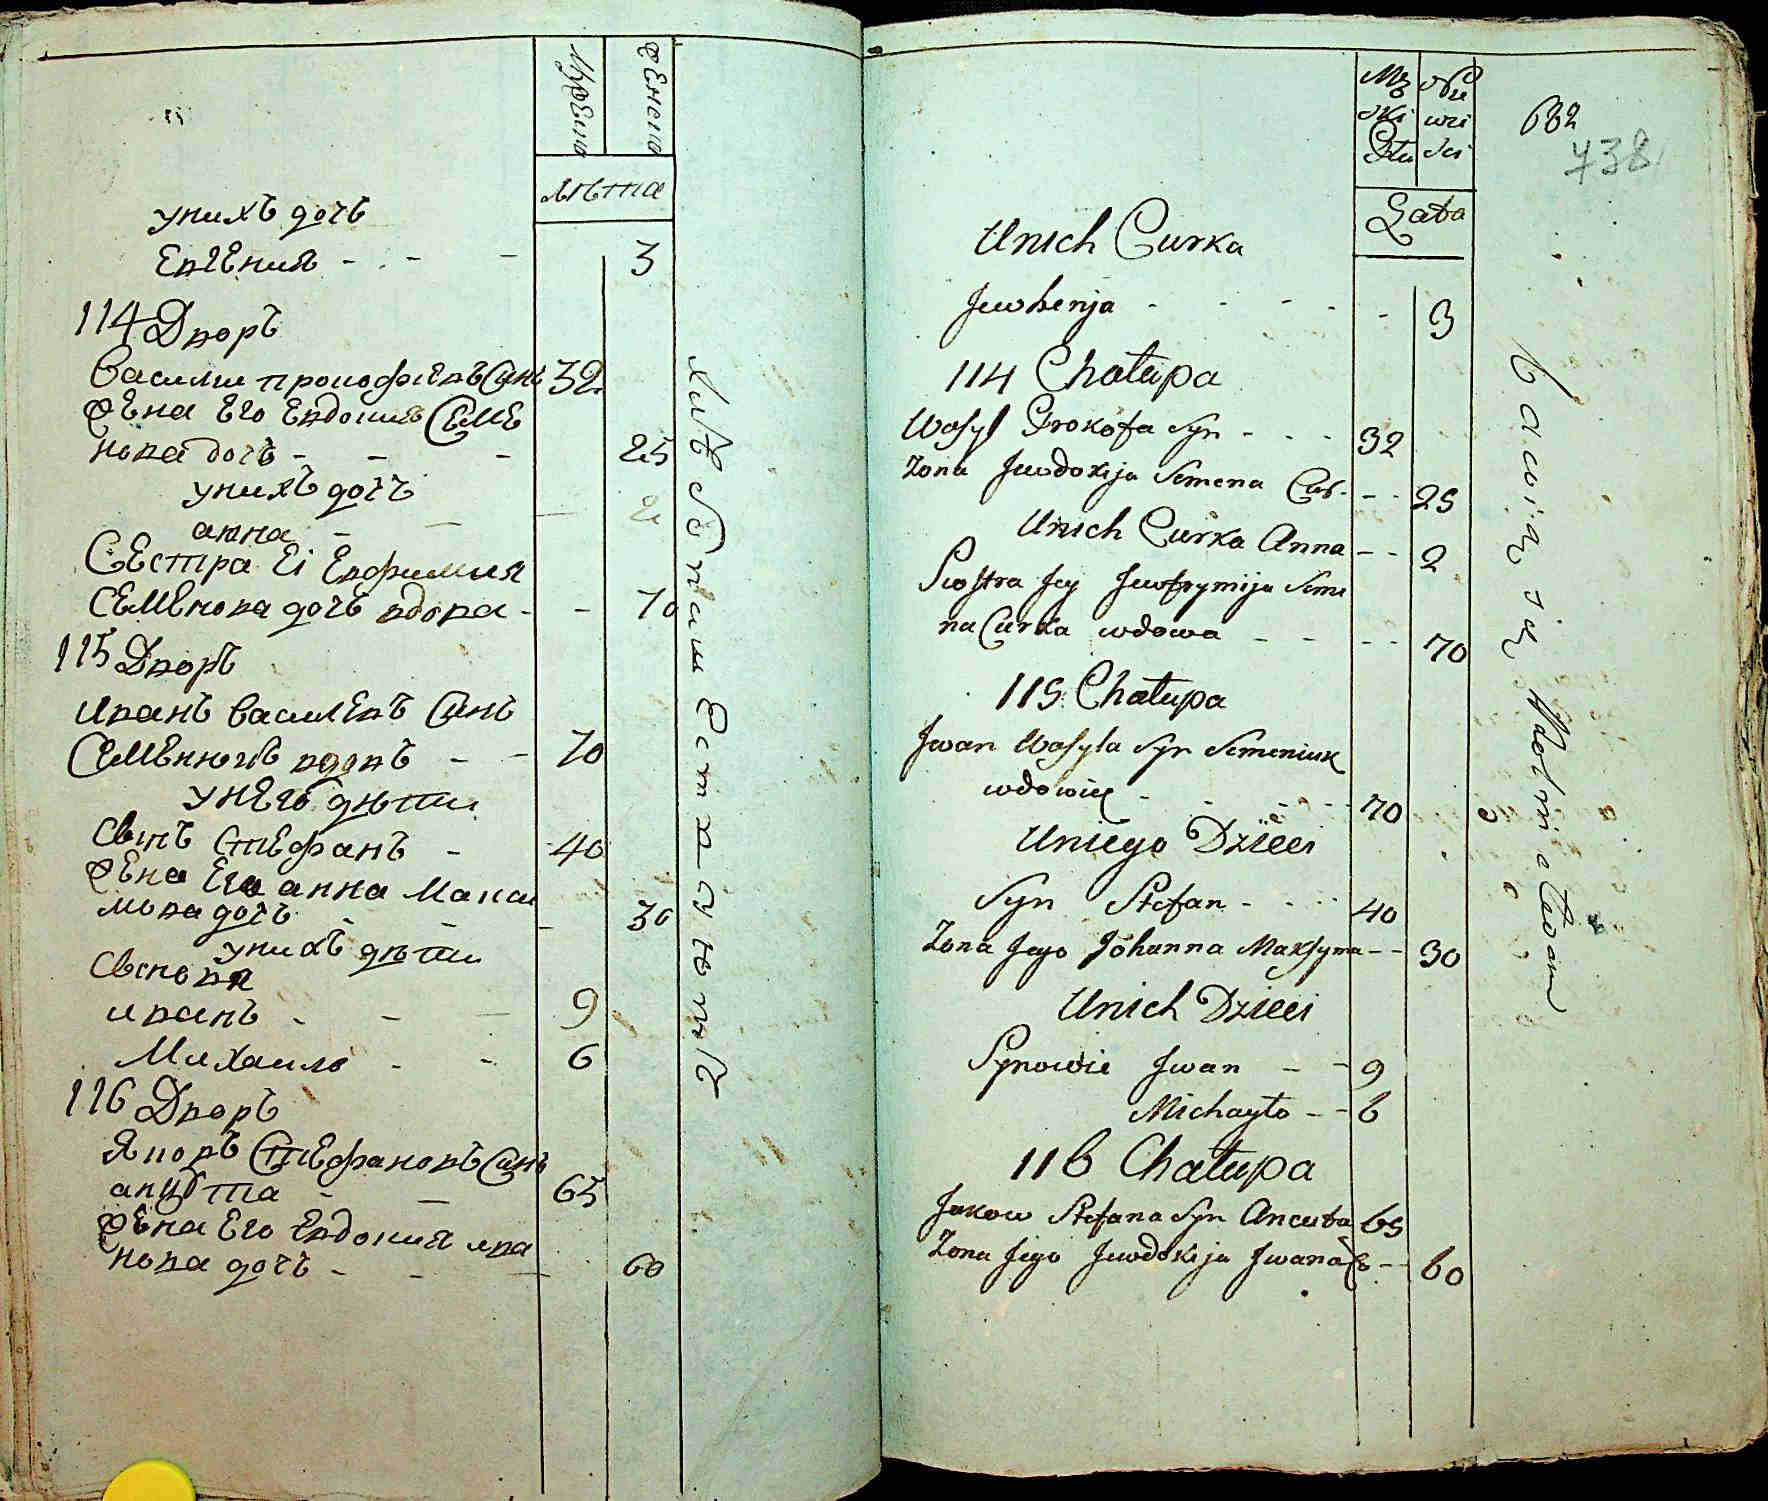 Мужеска
Женска
лѣта
унихъ дочь
Евгения - - - 3
114 Дворъ
Василии прокофиевъ Синъ 32
жена Его Евдокия Семе
нова дочь - - - 25
унихъ дочь
анна - - - 2
Сестра Еі Евфимия
Семенова дочь вдова - - 70
115 Дворъ
Иванъ василевъ Синъ
Семенюкъ вдовъ - - 70
унего дѣти
Синъ Стефанъ - 40
жена Его анна Макси
мова дочь - - - 30
унихъ дѣти
Синовя
иванъ - - - 9
Михаило - - 6
116 Дворъ
Яковъ Стефановъ Синъ
анцута - - 65
жена Его Евдокия ива
нова дочь - - - 60
Męz
skiey
Płci
Nie
wie
sci
Lata
632
738
Unich Curka
Jewhenja - - - - - 3
114 Chałupa
Wasyl Prokofa Syn - - - 32
Zona Jewdokija Semena Cur. - - 25
Unich Curka Anna - - 2
Siostra Jey Jewfrymija Seme
na Curka wdowa - - - - 70
115 Chałupa
Jwan Wasyla Syn Semeniuk
wdowiec - - - - 70
Uniego Dzieci
Syn Stefan - - - 40
Zona Jego Johanna Maksyma - - 30
Unich Dzieci
Synowie Jwan - - 9
Michayło - - 6
116 Chałupa
Jakow Stefana Syn Ancuta 65
Zona Jego Jewdokija Jwana C - - 60